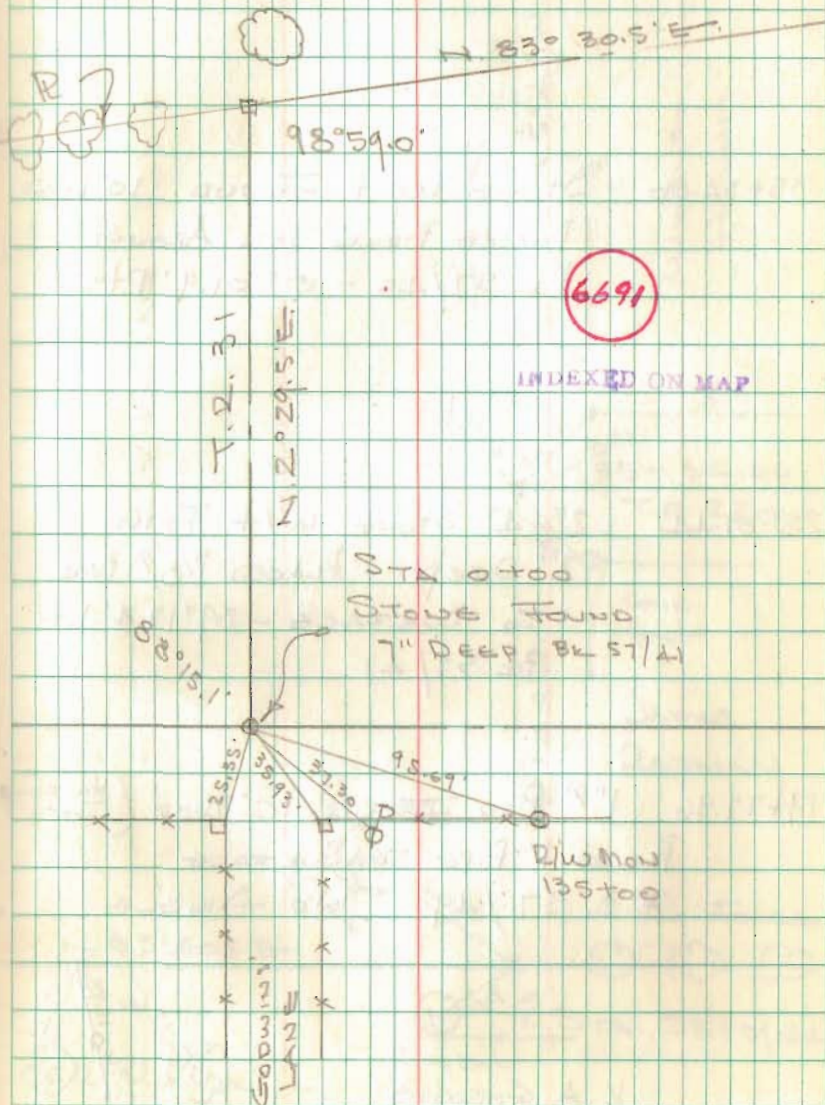 N. 83° 30.5' E.
PL
98°59.0'
6691
INDEXED ON MAP
T.R. 31
N. 2°29.5' E.
STA 0+00
STONE FOUND
7" DEEP BK 57/41
88°15.1'
25.35'
35.93'
37.30
95.69'
P
R/W MON
135+00
LANE